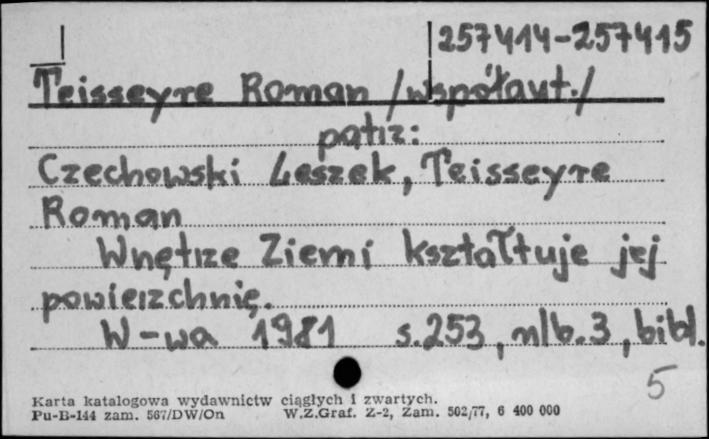 257414-257415
Teisseyre Roman /współaut./
patrz:
Czechowski Leszek, Teisseyre
Roman
Wnętrze Ziemi kształtuje jej
powierzchnię.
W-wa 1981 s.253, nlb.3, bibl.
5
Karta katalogowa wydawnictw ciągłych i zwartych.
Pu-B-144 zam. 567/DW/On W.Z.Graf. Z-2, Zam. 502/77, 6 400 000